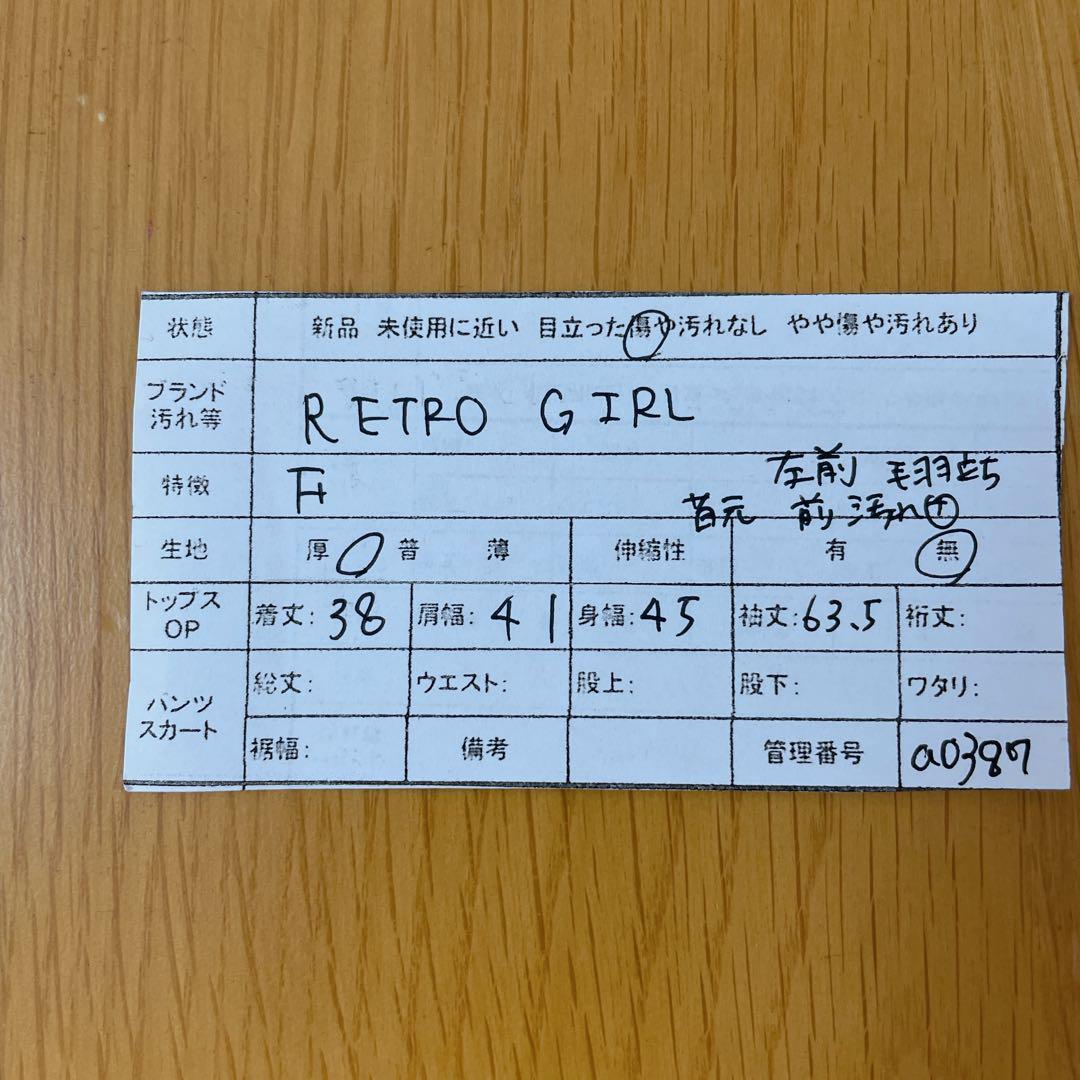 状態 新品 未使用に近い 目立った傷や汚れなし やや傷や汚れあり
ブランド
汚れ等
RETRO GIRL
特徴 F
左前 毛羽立ち
首元 前 汚れ小
生地 厚 普 薄 伸縮性 有 無
トップス
OP
着丈:38 肩幅:41 身幅:45 袖丈:63.5 裄丈:
パンツ
スカート
総丈: ウエスト: 股上: 股下: ワタリ:
裾幅: 備考 管理番号 a0387